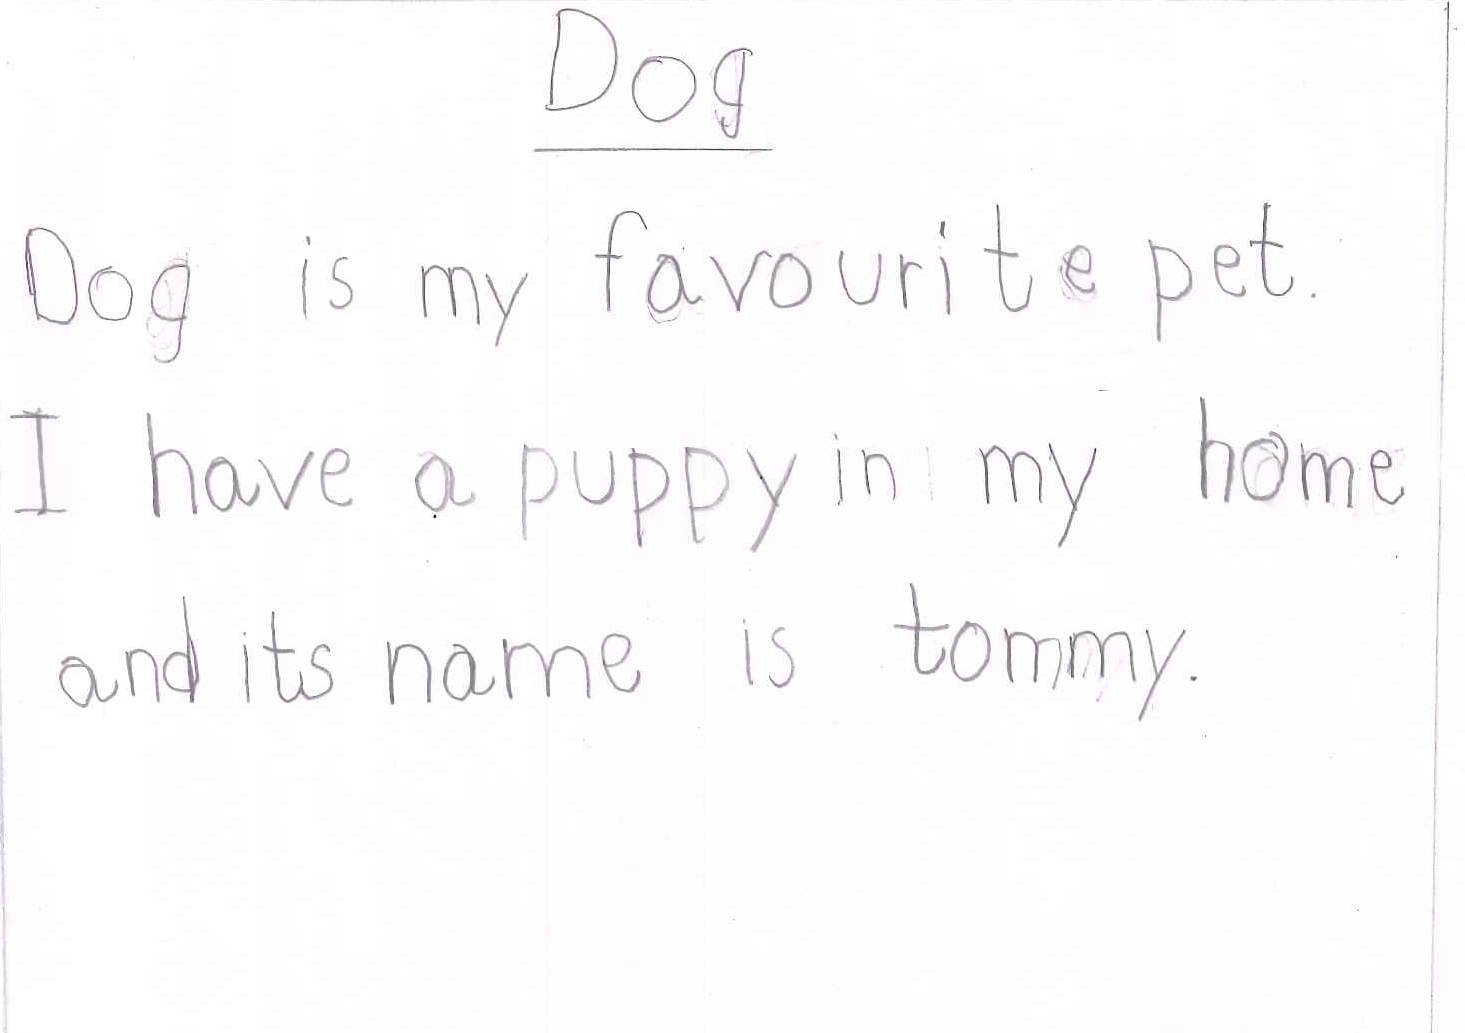 Dog
Dog is my favourite pet.
I have a puppy in my home
and its name is tommy.